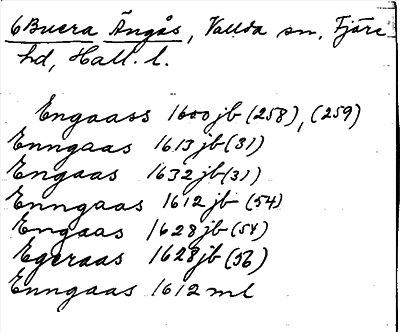 6 Buera Ängås, Vallda sn, Fjäre
hd, Hall. l.
Engaass 1600 jb (258), (259)
Enngaas 1613 jb (31)
Engaas 1632 jb (31)
Enngaas 1612 jb (54)
Engaas 1628 jb (54)
Egeraas 1628 jb (56)
Enngaas 1612 ml